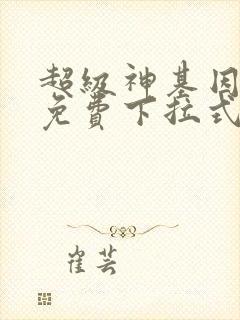 超级神基因
免费下拉式
崔芸